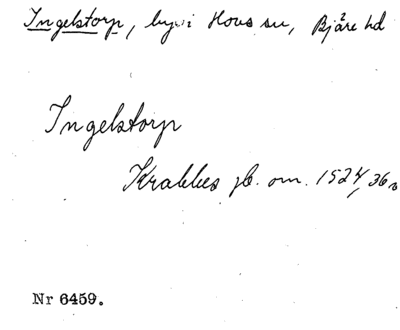 Ingelstorp, by i Hovs sn, Bjäre hd
Ingelstorp
Krabbes jb. om. 1524, 36
Nr 6459.